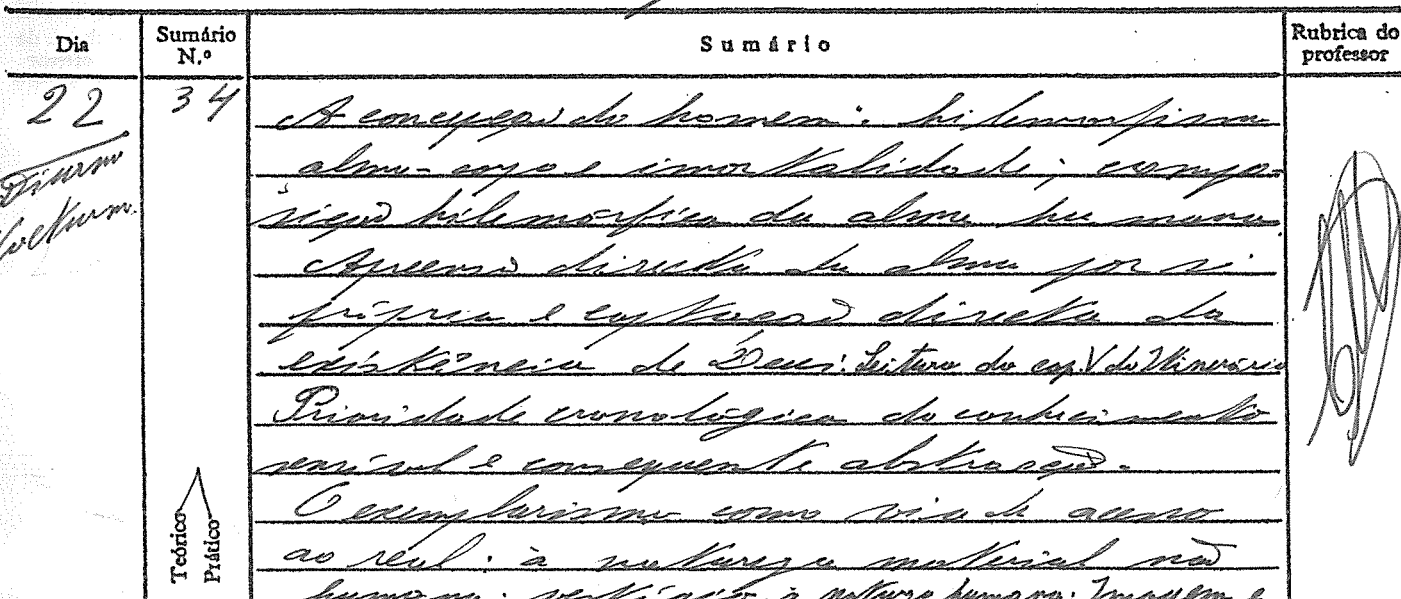 Dia
Sumário N.º
Sumário
Rubrica do professor
22
Diurno
Nocturno
34
A concepção do homem: hilemorfismo
alma-corpo e imortalidade; compo-
sição hilemórfica da alma humana.
Apreensão directa da alma por si
própria e captação directa da
existência de Deus: Leitura do cap. V do Itinerário
Prioridade cronológica do conhecimento
sensível e consequente abstracção.
O exemplarismo como via de acesso
ao real: à natureza material não
humana: vestígio; à natureza humana: Imagem e
Teórico
Prático